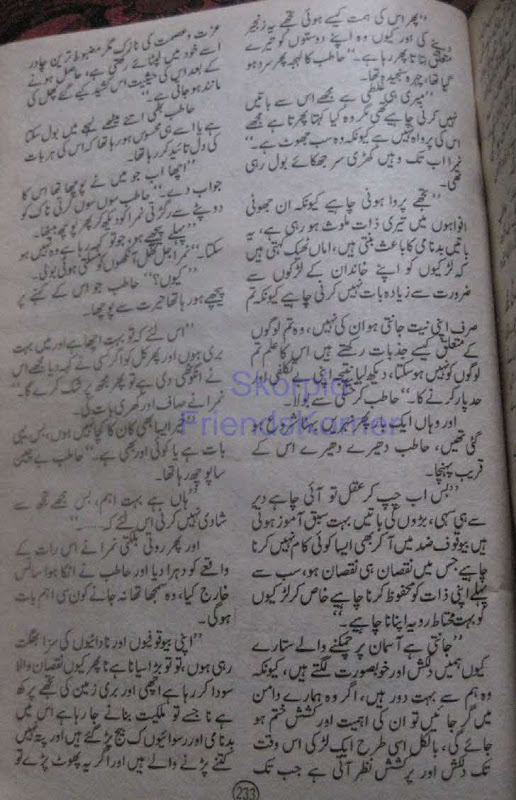 ”پھر اس کی ہمت کیسے ہوئی تجھے یہ زنجیر
دینے کی اور کیوں وہ اپنے دوستوں کو تیرے
متعلق بتاتا پھر رہا ہے۔“ حاطب کا لہجہ پھر سرد ہو
گیا تھا، چہرہ سنجیدہ تھا۔
”میری ہی غلطی ہے مجھے اس سے باتیں
نہیں کرنی چاہیے تھی مگر وہ کیا کہتا پھرتا ہے مجھے
اس کی پرواہ نہیں ہے کیونکہ وہ سب جھوٹ ہے۔“
نمرا اب تک وہیں کھڑی سر جھکائے بول رہی
تھی۔
”تجھے پروا ہونی چاہیے کیونکہ ان جھوٹی
افواہوں میں تیری ذات ملوث ہو رہی ہے، یہ
باتیں بدنامی کا باعث بنتی ہیں، اماں ٹھیک کہتی ہیں
کہ لڑکیوں کو اپنے خاندان کے لڑکوں سے
ضرورت سے زیادہ بات نہیں کرنی چاہیے کیونکہ تم
صرف اپنی نیت جانتی ہو ان کی نہیں، وہ تم لوگوں
کے متعلق کیسے جذبات رکھتے ہیں اس کا علم تم
لوگوں کو نہیں ہو سکتا، دیکھ لیا نتیجہ اپنی بے تکلفی اور
حد پار کرنے کا۔“ حاطب کرختگی سے بولا۔
اور وہاں ایک بار پھر نہریں بہنا شروع ہو
گئی تھیں، حاطب دھیرے دھیرے اس کے
قریب پہنچا۔
”بس اب چپ کر عقل تو آئی چاہے دیر
سے ہی سہی، بڑوں کی باتیں بہت سبق آموز ہوتی
ہیں بیوقوف ضد میں آ کر بھی ایسا کوئی کام نہیں کرنا
چاہیے جس میں نقصان ہی نقصان ہو، سب سے
پہلے اپنی ذات کو محفوظ کرنا چاہیے خاص کر لڑکیوں
کو بہت محتاط رویہ اپنانا چاہیے۔“
”جانتی ہے آسمان پر چمکنے والے ستارے
کیوں ہمیں دلکش اور خوبصورت لگتے ہیں، کیونکہ
وہ ہم سے بہت دور ہیں، اگر وہ ہمارے دامن
میں گر جائیں تو ان کی اہمیت اور کشش ختم ہو
جائے گی، بالکل اسی طرح ایک لڑکی اس وقت
تک دلکش اور پرکشش نظر آتی ہے جب تک
عزت و عصمت کی نازک مگر مضبوط ترین چادر
اسے خود میں لپٹائے رکھتی ہے، حاصل ہونے
کے بعد اس کی حیثیت اس کشید کیے گئے پھل کی
مانند ہو جاتی ہے۔“
حاطب بھی اتنے میٹھے لہجے میں بول سکتا
ہے یا اسے ہی محسوس ہو رہا تھا کہ اس کی ہر بات
کی دل تائید کر رہا تھا۔
”اچھا اب جو میں نے پوچھا تھا اس کا
جواب دے۔“ حاطب سوں سوں کرتی ناک کو
دوپٹے سے رگڑتی نمرا کو دیکھ کر پھر پوچھ بیٹھا۔
”پہلے پیچھے ہو، جو تو کہہ رہا ہے وہ نہیں ہو
سکتا۔“ نمرا جل تھل آنکھوں کو مسلتی ہوئی بولی۔
”کیوں؟“ حاطب جو اس کے کہنے پر
پیچھے ہو رہا تھا حیرت سے پوچھا۔
”اس لئے کہ تو بہت اچھا ہے اور میں بہت
بری ہوں اور پھر کل کو اگر کسی نے کہہ دیا مجھے اس
نے انگوٹھی دی ہے تو پھر مجھ پر شک کرے گا۔“
نمرا نے صاف اور کھری بات کی۔
”خیر ایسا بھی کان کا کچا نہیں ہوں، بس یہی
بات ہے یا کوئی اور بھی ہے۔“ حاطب بے چین
سا پوچھ رہا تھا۔
”ہاں ہے بہت اہم، بس مجھے تجھ سے
شادی نہیں کرنی اس لئے کہ......“
اور پھر روتی بلکتی نمرا نے اس رات کے
واقعے کو دہرا دیا اور حاطب نے اٹکا ہوا سانس
خارج کیا، وہ سمجھا تھا نہ جانے کون سی اہم بات
ہو گی۔
”اپنی بیوقوفیوں اور نادانیوں کی سزا بھگت
رہی ہوں، تو تو بڑا سیانا ہے نا پھر کیوں نقصان والا
سودا کر رہا ہے اچھی اور بری زمین کی تجھے پرکھ
ہے نا جسے تو ملکیت بنانے جا رہا ہے اس میں
بدنامی اور رسوائیوں کے بیج پڑ گئے ہیں اور پتہ نہیں
کتنے پڑنے والے ہیں اور اگر یہ پھوٹ پڑے تو
233
Skorpio
FriendsKorner